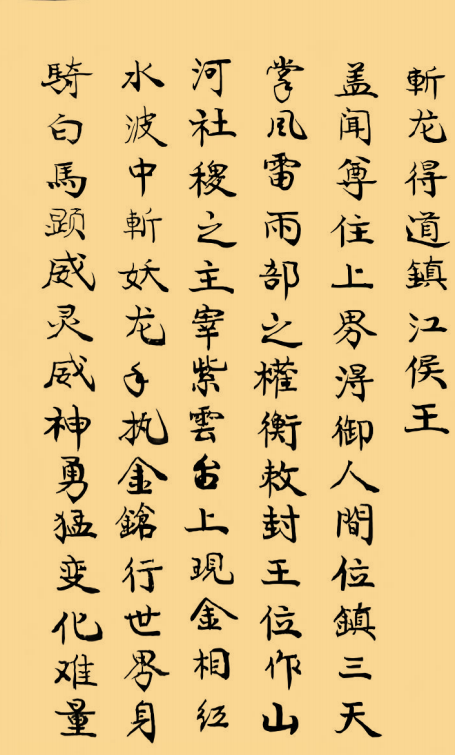 斬龙得道鎮江侯王
盖闻尊住上界淂御人間位鎮三天
掌風雷雨部之權衡敕封王位作山
河社稷之主宰紫雲台上現金相红
水波中斬妖龙手执金鎗行世界身
騎白馬顕威灵威神勇猛变化难量